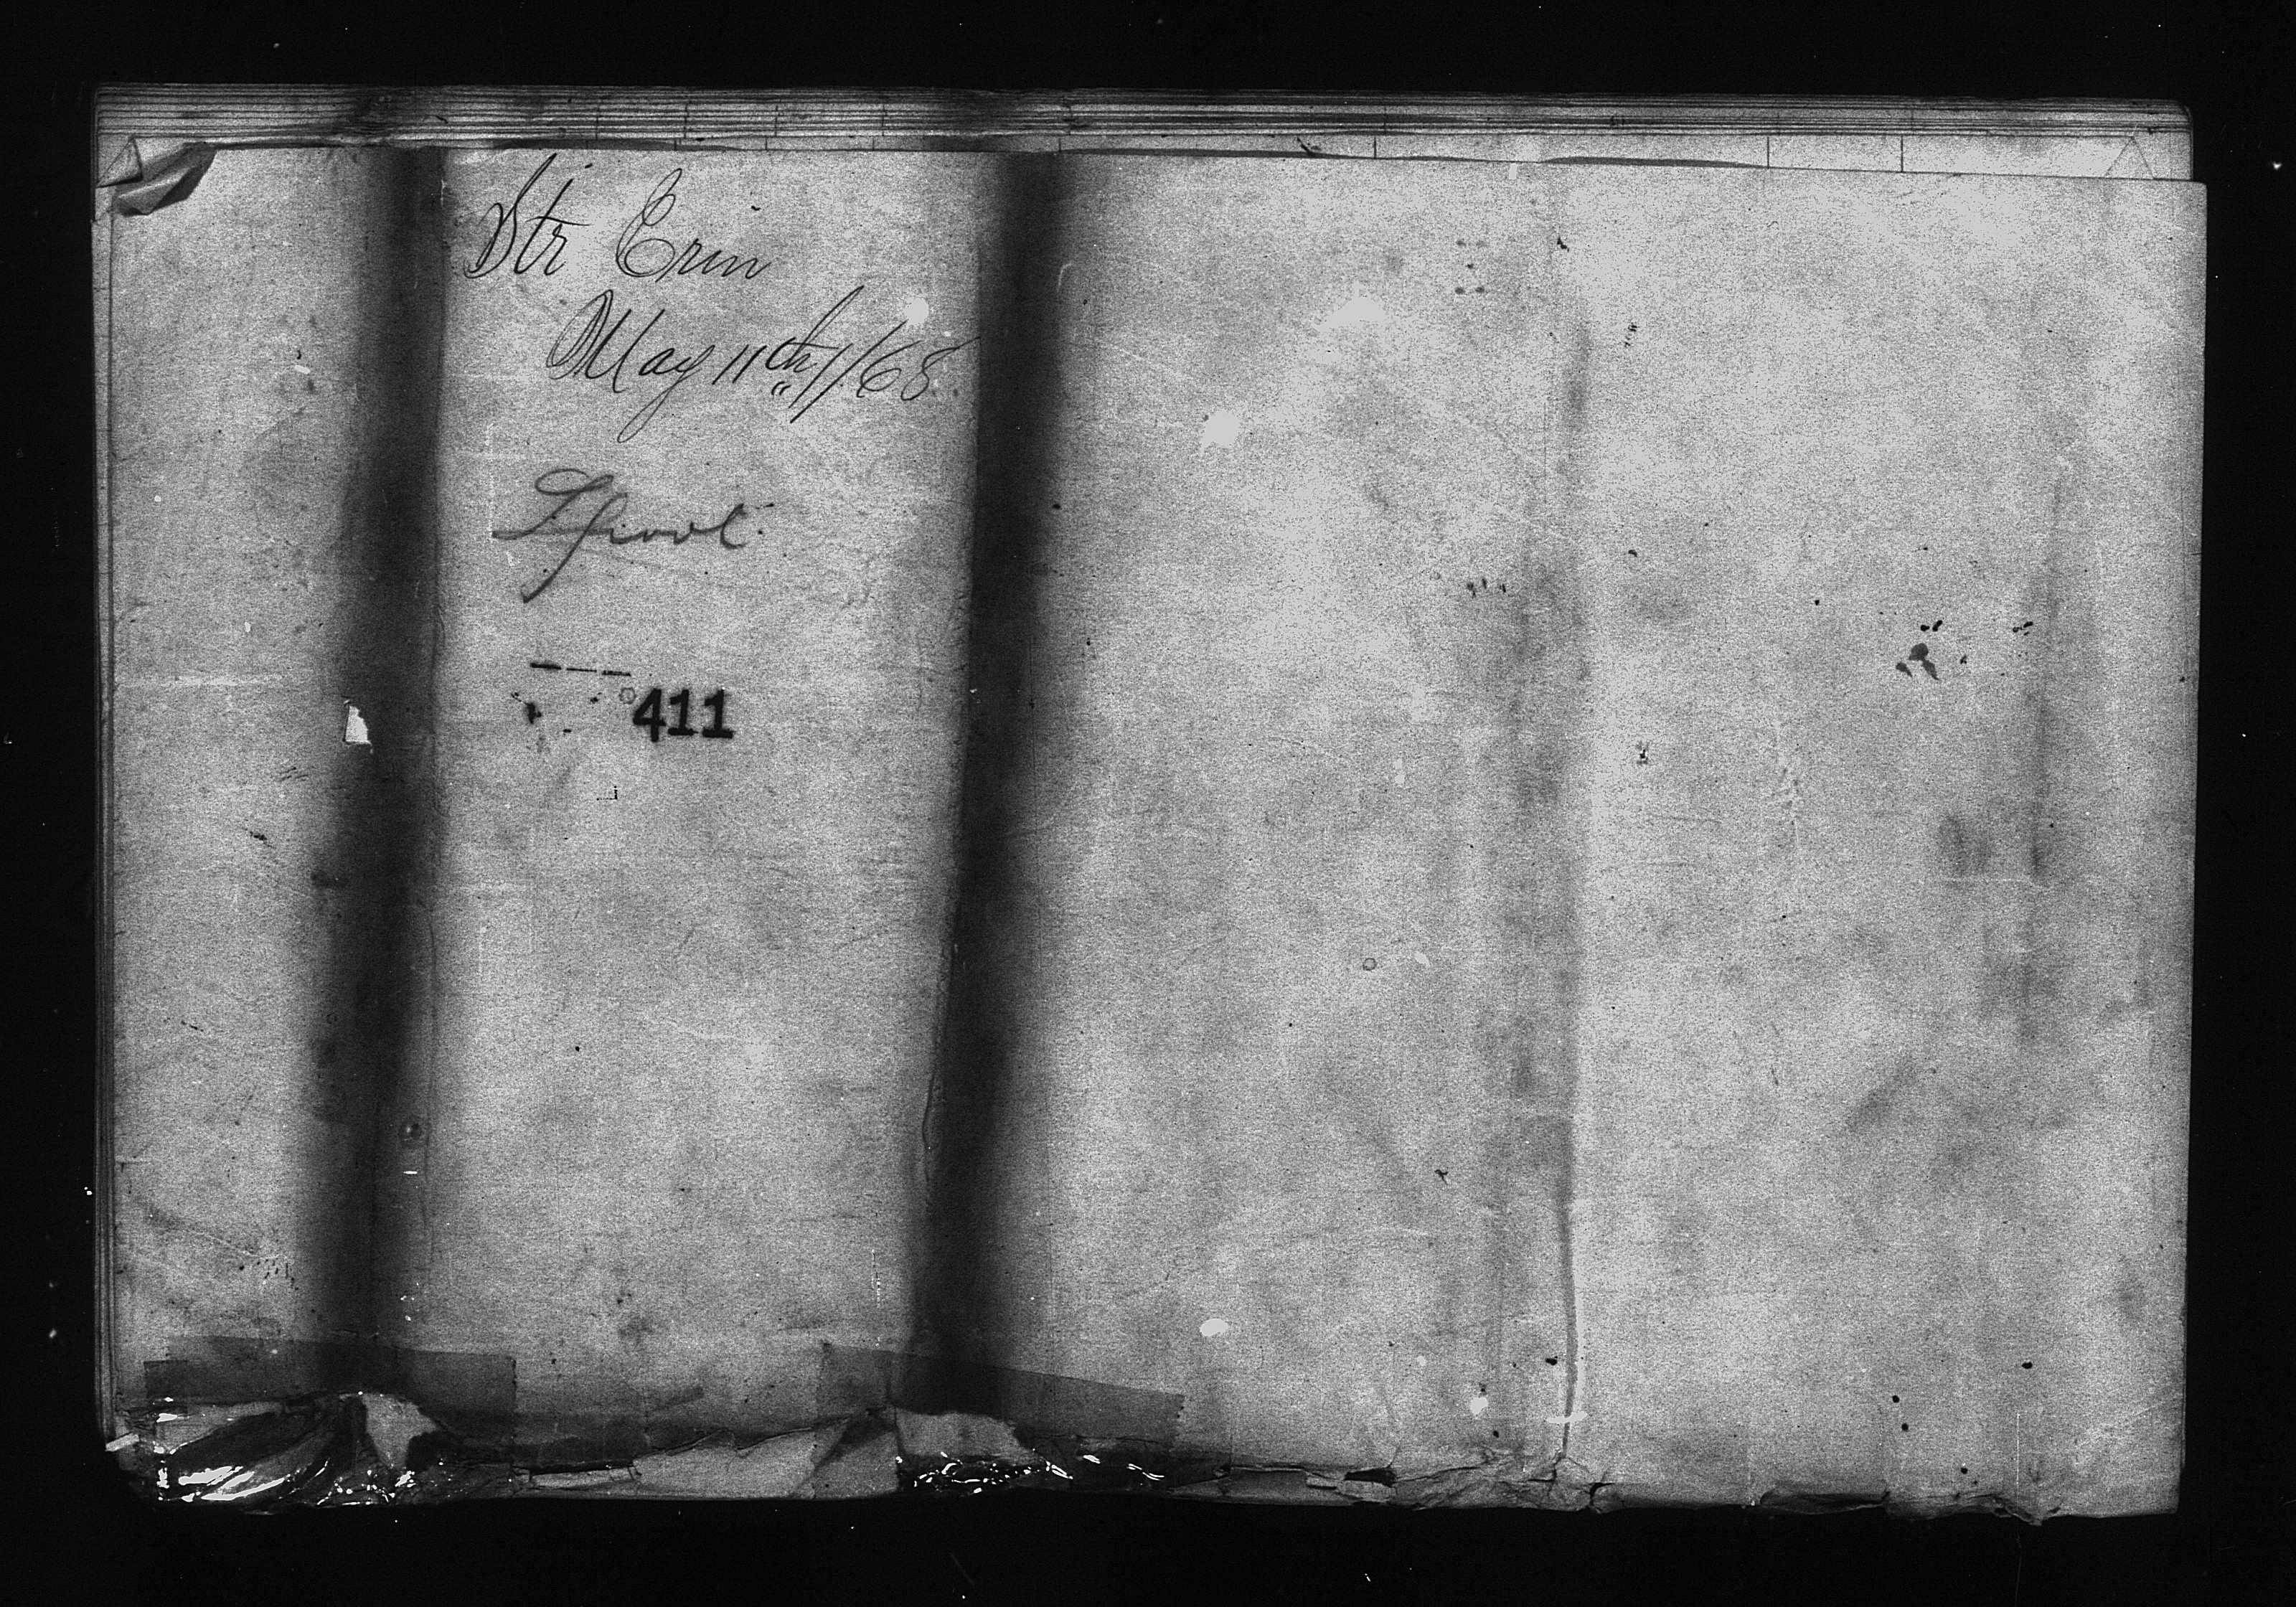 Str Erin
May 11th //68.
Lpool.
411